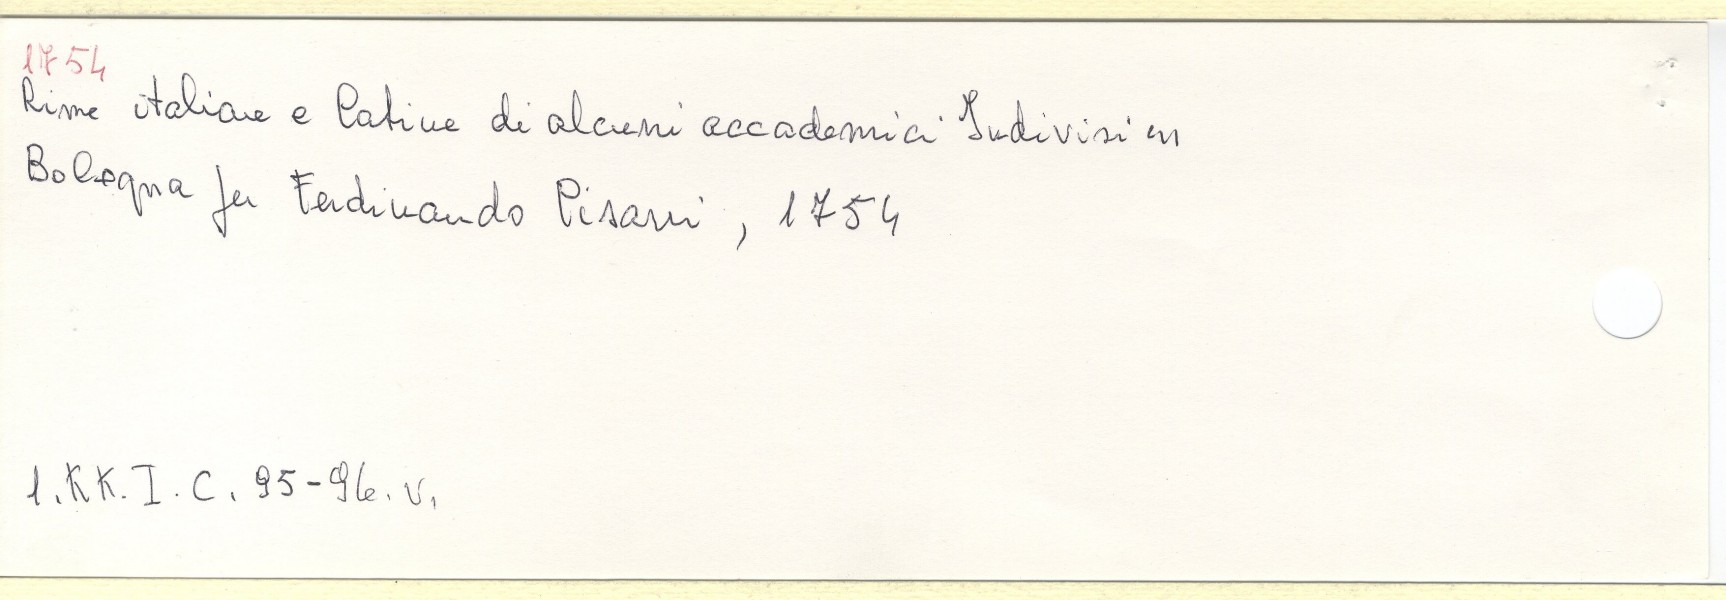 1754
Rime italiane e latine di alcuni accademici Indivisi in
Bologna per Ferdinando Pisarri, 1754
1.KK.I.C. 95-96.v.